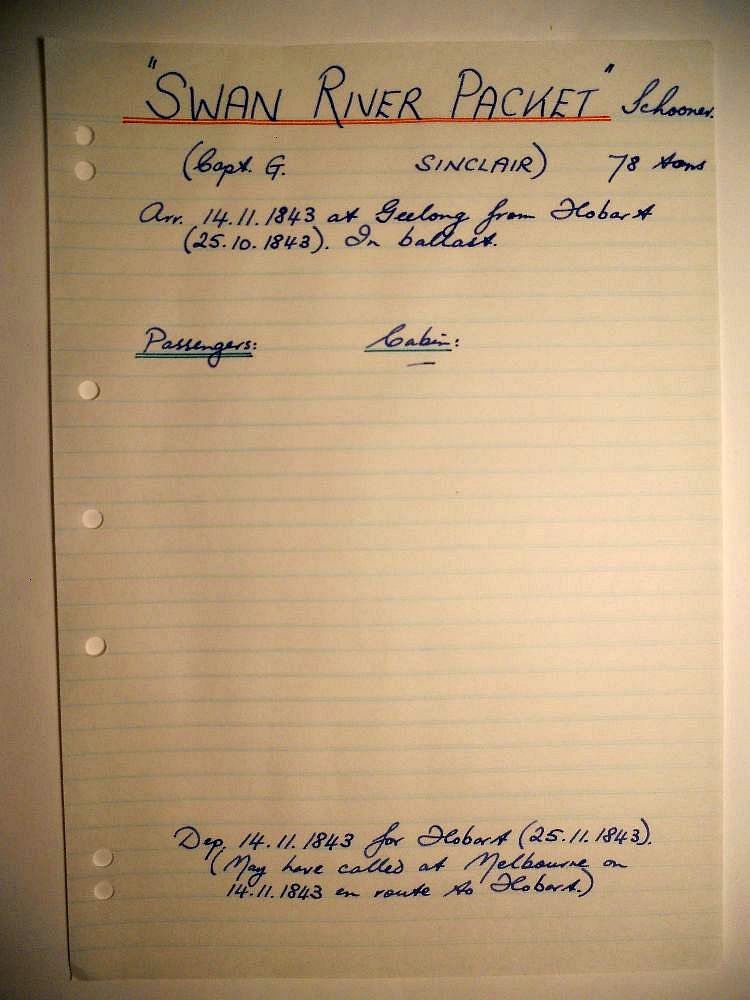 "SWAN RIVER PACKET" Schooner.
(Capt. G. SINCLAIR) 78 tons
Arr. 14.11.1843 at Geelong from Hobart
(25.10.1843). In ballast.
Passengers: Cabin:
—
Dep. 14.11.1843 for Hobart (25.11.1843).
(May have called at Melbourne on
14.11.1843 en route to Hobart.)